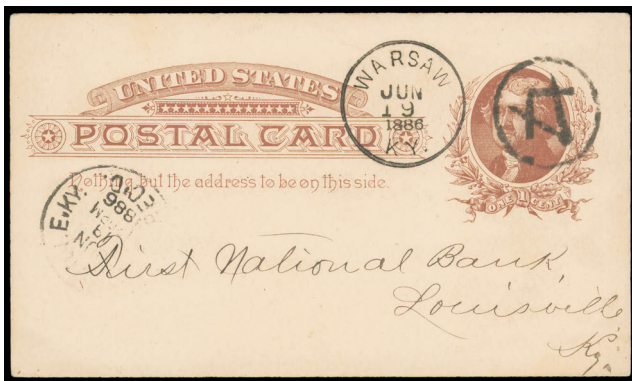 UNITED STATES
POSTAL CARD
Nothing but the address to be on this side.
WARSAW
JUN
19
1886
KY.
ONE 1 CENT
E.KY.
First National Bank,
Louisville
Ky.